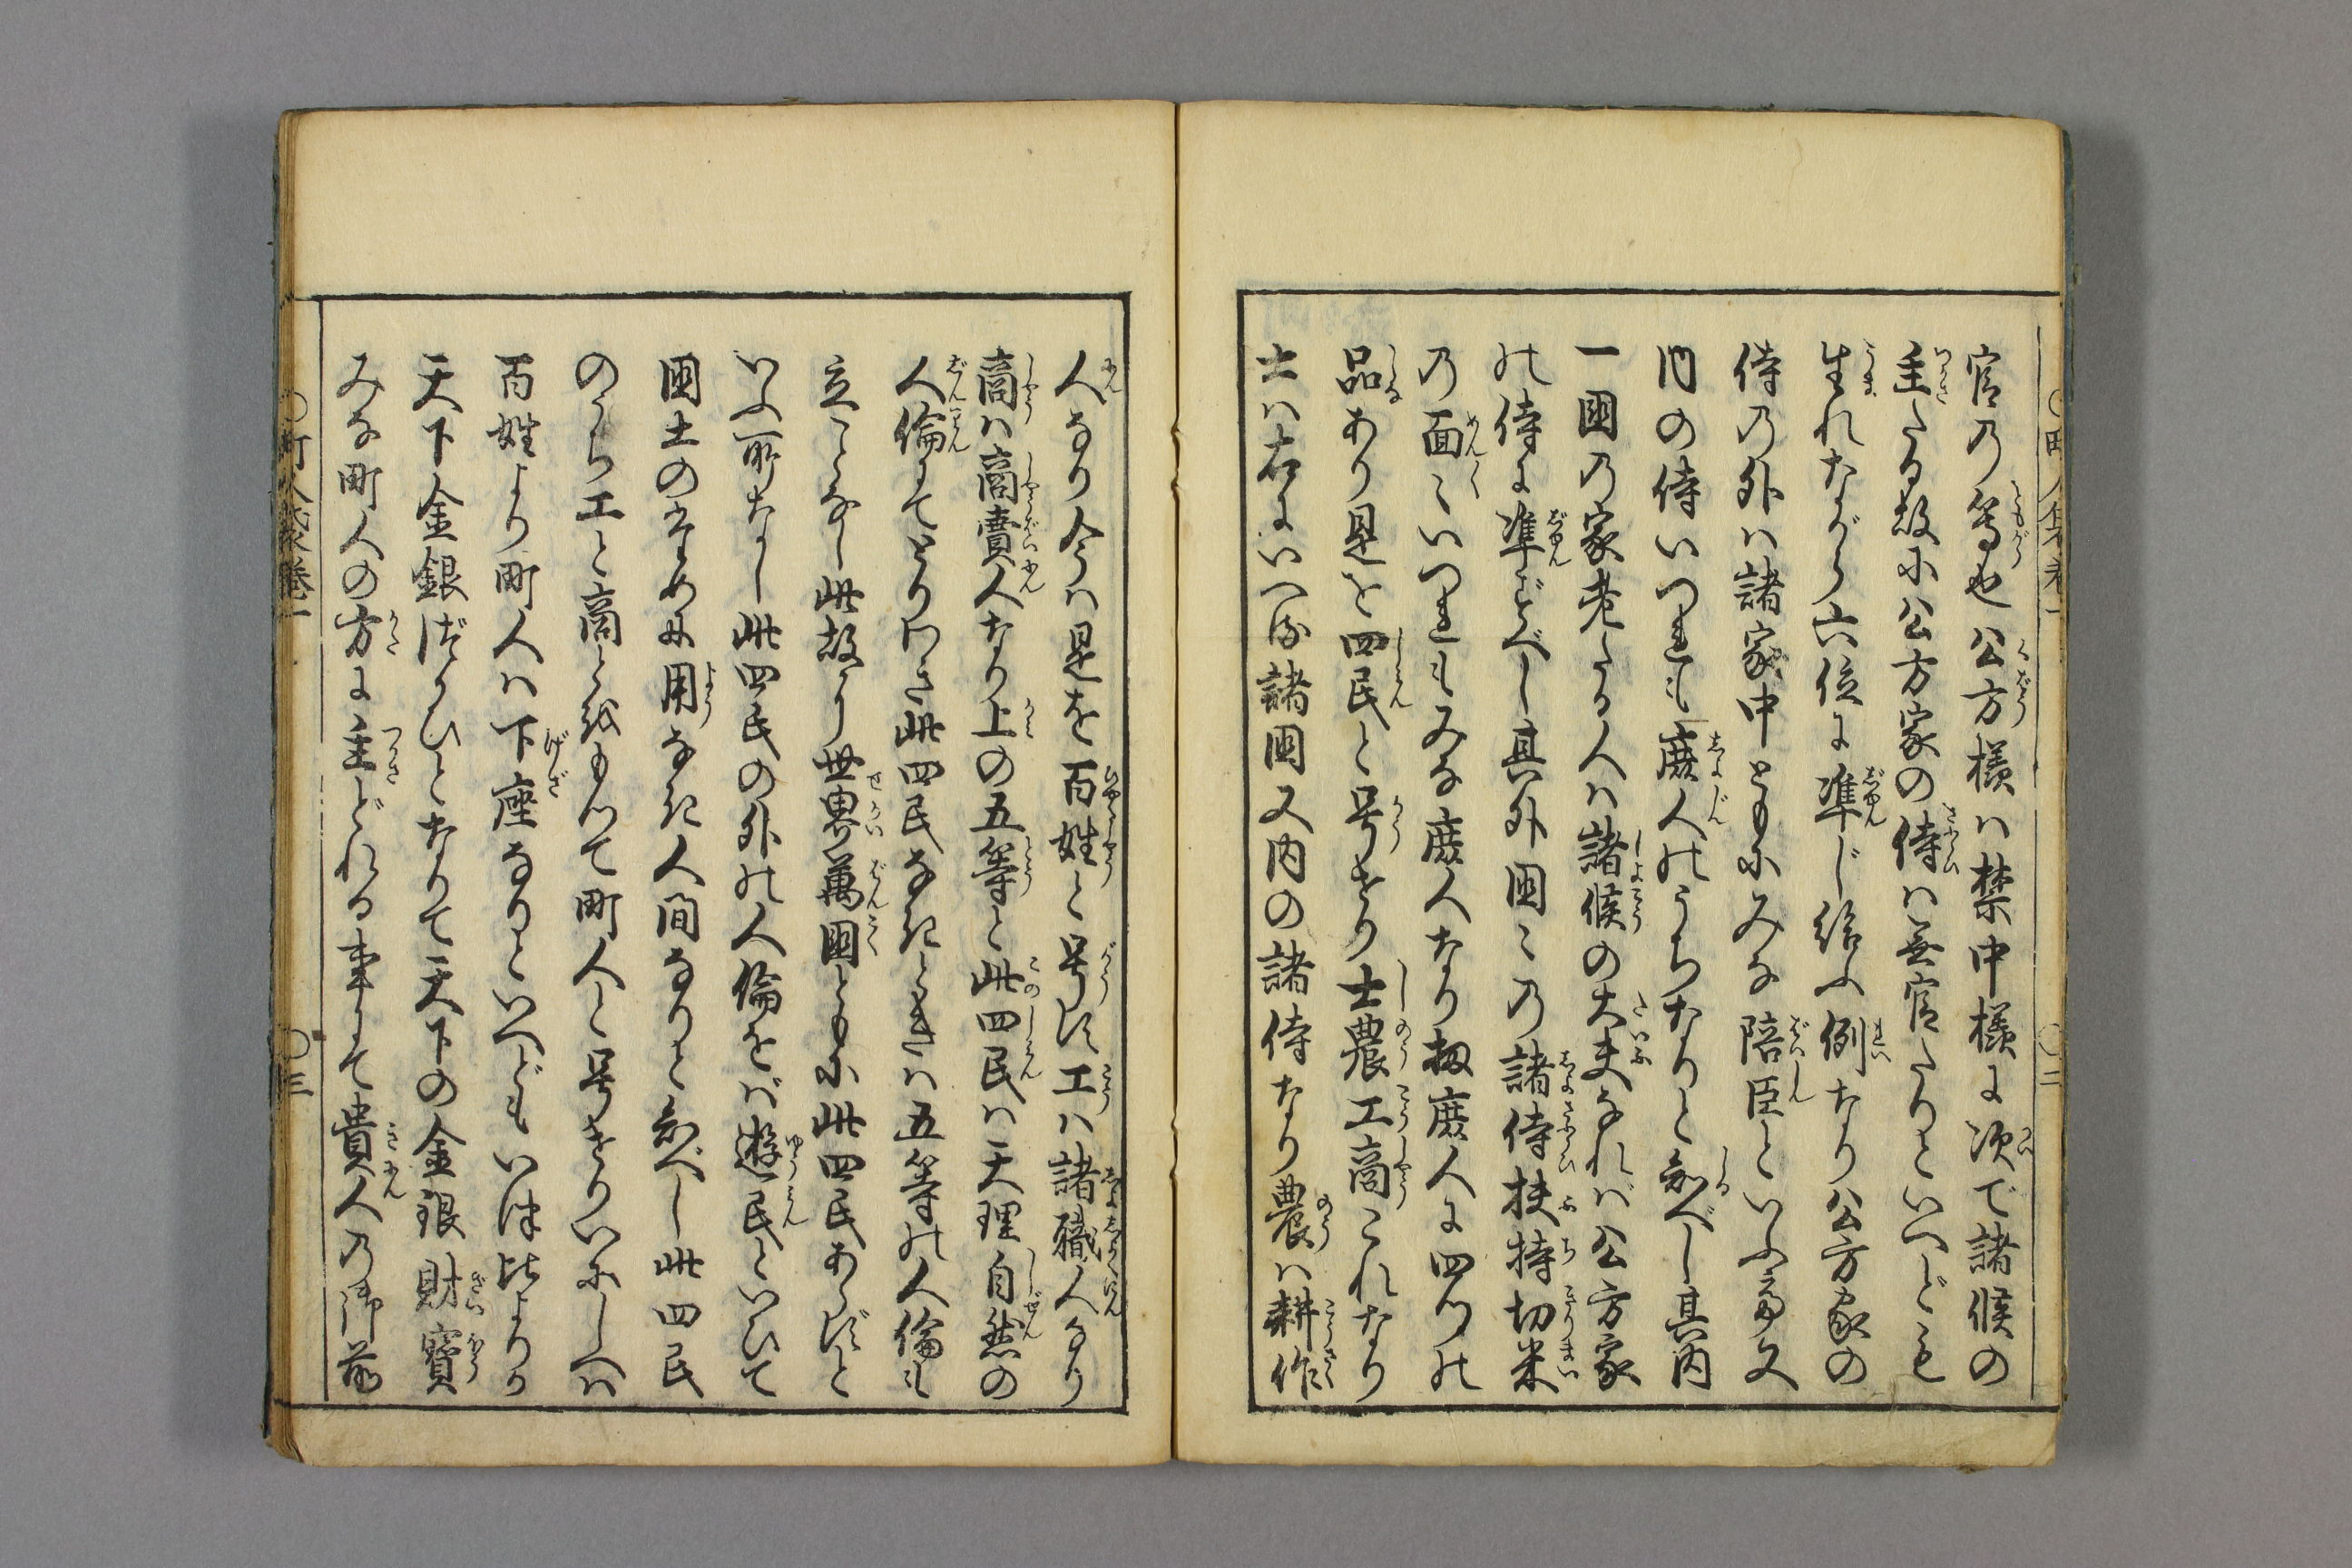 官の等也公方様ハ禁中様に次で諸候の
主たる故に公方家の侍ハ無官たりといへども
生れながら六位に準じ給ふ例なり公方家の
侍の外ハ諸家中ともにみな陪臣といふ也又
内の侍いづれも庶人のうちなりと知べし其内
一国の家老たる人ハ諸候の大夫なれば公方家
の侍に準ずべし其外国々の諸侍扶持切米
の面々いづれもみな庶人なり扨庶人に四つの
品あり是を四民と号せり士農工商これなり
士ハ右にいへる諸国又内の諸侍なり農ハ耕作
人なり今ハ是を百姓と号す工ハ諸職人なり
商ハ商賣人なり上の五等と此四民ハ天理自然の
人倫にてとりわき此四民なきときハ五等の人倫も
立ことなし此故に世界萬国ともに此四民あらずと
いふ所なし此四民の外の人倫をば遊民といひて
国土のために用なき人間なりと知べし此四民
のうち工と商とをもつて町人と号せりいにしへハ
百姓より町人ハ下座なりといへどもいつ比よりか
天下金銀づかひとなりて天下の金銀財寶
みな町人の方に主どれる事にて貴人の御前
〇町人袋巻一
〇二
〇三